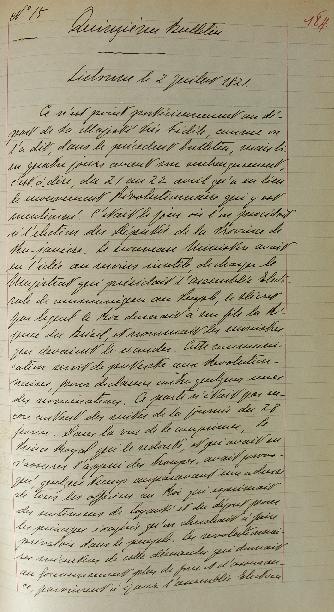 N° 15
184
Quinzième Bulletin
Lisbonne le 2 Juillet 1821.
Ce n'est point postérieurement au dé-
part de Sa Majesté très fidèle, comme on
l'a dit, dans le précédent bulletin, mais bi-
en quatre jours avant son embarquement,
c'est à dire, du 21 au 22 avril qu'a eu lieu
le mouvement révolutionnaire qui y est
mentionné. C'était le jour où l'on procédait
à l'élection des députés de la Province de
Rio-Janeiro. Le nouveau Ministère avait
eu l'idée au moins inutile de charger le
Magistrat qui présidait l'assemblée Electo-
rale de communiquer au Peuple, le décret
par lequel le Roi donnait à son fils la Ré-
gence du Brésil, et nommait les ministres
qui devaient le seconder. Cette communi-
cation servit de prétexte aux révolution-
naires, pour déclamer contre quelques unes
des nominations. Ce parti n'était pas en-
core content des suites de la journée du 26
Février. Dans la vue de le comprimer, le
Prince Royal que le redoute, et qui avait su
s'assurer l'appui des troupes, avait provo-
qué, quelque temps auparavant une adresse
de tous les officiers au Roi qui exprimait
des sentimens de loyauté et du dégoût pour
les principes exagérés qu'on cherchait à faire
prévaloir dans le peuple. Les révolutionnai-
res mécontens de cette démarche qui donnait
au Gouvernement plus de force et d'assuran-
ce, parvinrent à gagner l'assemblée Electorale